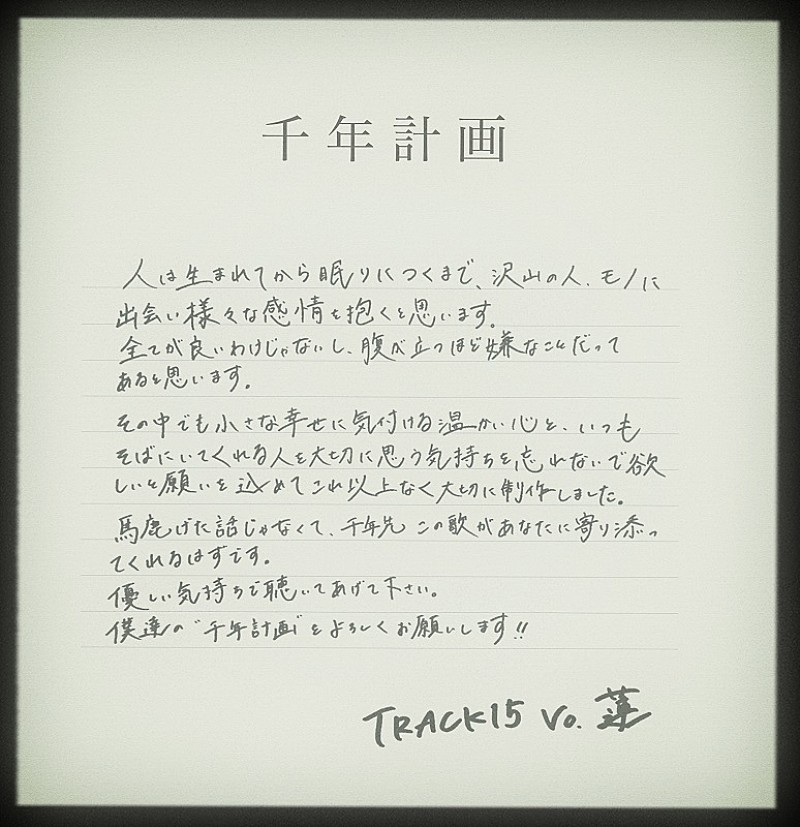 千年計画
人は生まれてから眠りにつくまで、沢山の人、モノに
出会い様々な感情を抱くと思います。
全てが良いわけじゃないし、腹が立つほど嫌なことだって
あると思います。
その中でも小さな幸せに気付ける温かい心と、いつも
そばにいてくれる人を大切に思う気持ちを忘れないで欲
しいと願いを込めてこれ以上なく大切に制作しました。
馬鹿げた話じゃなくて、千年先この歌があなたに寄り添っ
てくれるはずです。
優しい気持ちで聴いてあげて下さい。
僕達の"千年計画"をよろしくお願いします!!
TRACK15 Vo. 蓮